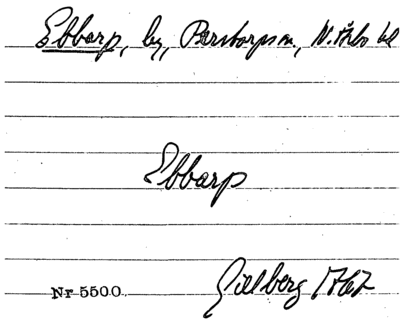 Ebbarp, by, Perstorps sn., N. Åsbo hd
Ebbarp
Gillberg 1767
Nr 5500.